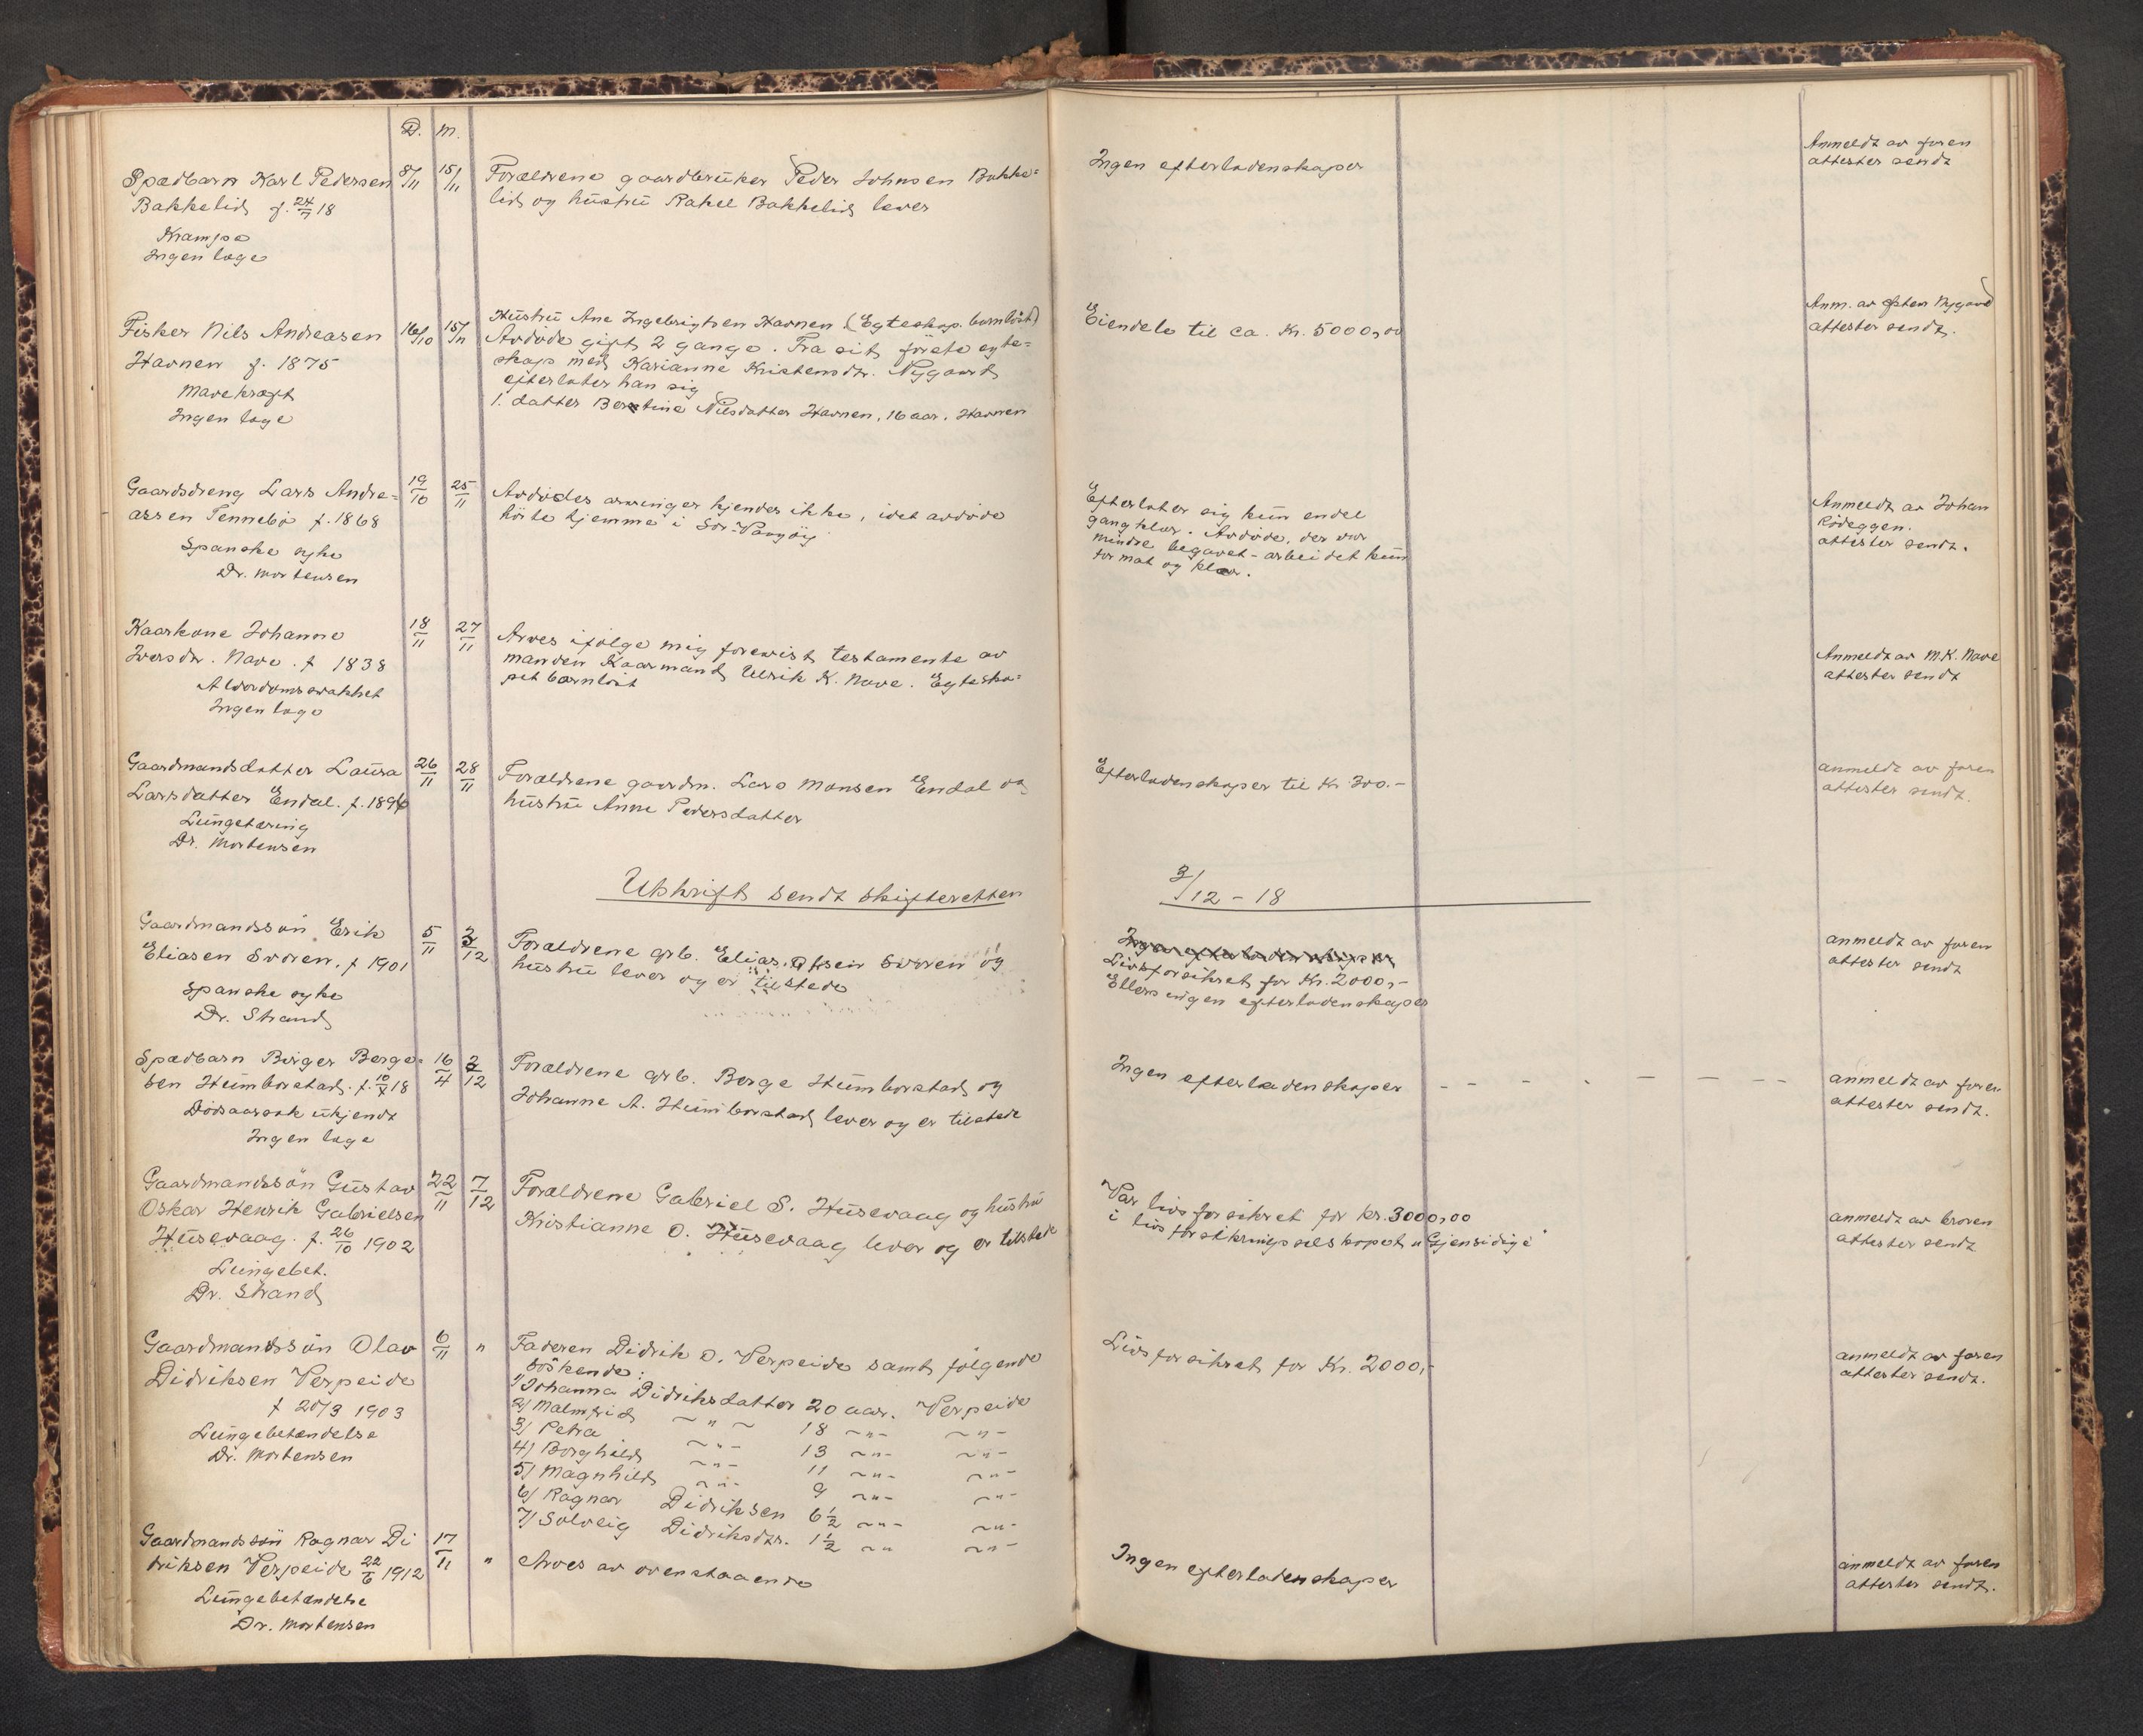 D. m.
Spædbarn Karl Pedersen 8/11 15/11 Forældrene gaardbruker Peder Johnsen Bakke= Ingen efterladenskaper Anmeldt av faren
Bakkelid f. 24/7 18 lid og hustru Rakel Bakkelid lever attester sendt
Krampe
Ingen læge
Fisker Nils Andreasen 16/10 15/11 Hustru Ane Ingebrigtsen Havnen (Egteskap. barnløst) Eiendele til ca. Kr. 5000,00 Anm. av Nygaard
Havnen f. 1875 Avdøde gift 2 gange. Fra sit første egte= attester sendt.
Mavekræft skap med Karianne Kristensdtr. Nygaard
Ingen læge efterlater han sig
1. datter Berntine Nilsdatter Havnen, 16 aar. Havnen
Gaardsdreng Lars Andre= 19/10 25/11 Avdødes arvinger kjendes ikke, idet avdøde Efterlater sig kun endel Anmeldt av Johan
assen Tennebø f. 1868 hørte hjemme i Sør-Vaagsøy gangklær. Avdøde, der var Rødeggen.
Spanske syke mindre begavet - arbeidet kun attester sendt.
Dr. Mortensen for mat og klær.
Kaarkone Johanne 18/11 27/11 Arves ifølge mig forevist testamente av Anmeldt av M.K. Nave
Iversdtr. Nave. f 1838 manden Kaarmand Ulrik K. Nave. Egteska= attester sendt
Alderdomssvakhet pet barnløst
Ingen læge
Gaardmandsdatter Laura 26/11 28/11 Forældrene gaardm. Lars Monsen Endal og Efterladenskaper til Kr 300.- anmeldt av faren
Larsdatter Endal. f. 1896 hustru Anne Pedersdatter attester sendt.
Lungetæring
Dr. Mortensen
Utskrift sendt skifteretten 3/12 - 18
Gaardmandssøn Erik 5/11 3/12 Forældrene grb. Elias Svoren og Ingen efterladenskaper anmeldt av faren
Eliasen Svoren. f 1901 hustru lever og er tilstede Livsforsikret for Kr. 2000,- attester sendt
Spanske syke Ellers ingen efterladenskaper
Dr. Strand
Spædbarn Birger Berge= 16/4 3/12 Forældrene grb. Berge Humborstad og Ingen efterladenskaper - - - - - - - anmeldt av faren
sen Humborstad. f. 18 Johanne A. Humborstad lever og er tilstede attester sendt.
Dødsaarsak ukjendt
Ingen læge
Gaardmandssøn Gustav 22/11 7/12 Forældrene Gabriel S. Husevaag og hustru Var livsforsikret for kr. 3000,00 anmeldt av broren
Oskar Henrik Gabrielsen Kristianne O. Husevaag lever og er tilstede i livsforsikringsselskapet "Gjensidige" attester sendt
Husevaag. f. 26/10 1902
Lungebet.
Dr. Strand
Gaardmandssøn Olav 6/11 " Faderen Didrik O. Verpeide samt følgende Livsforsikret for Kr. 2000,- anmeldt av faren
Didriksen Verpeide søskende: attester sendt.
f 20/3 1903 1) Johanna Didriksdatter 20 aar. Verpeide
Lungebetændelse 2) Malmfrid ~"~ 18 ~"- ~"-
Dr. Mortensen 3) Petra ~"- 13 ~"- ~"-
4) Borghild ~"- 11 ~"- ~"-
5) Magnhild ~"- 9 ~"- ~"-
6) Ragnar Didriksen 6½ ~"- ~"-
7) Solveig Didriksdtr. 1½ ~"- ~"-
Gaardmandssøn Ragnar Di 17/11 " Arves av ovenstaaende Ingen efterladenskaper anmeldt av faren
driksen Verpeide 22/6 1912 attester sendt.
Lungebetændelse
Dr. Mortensen